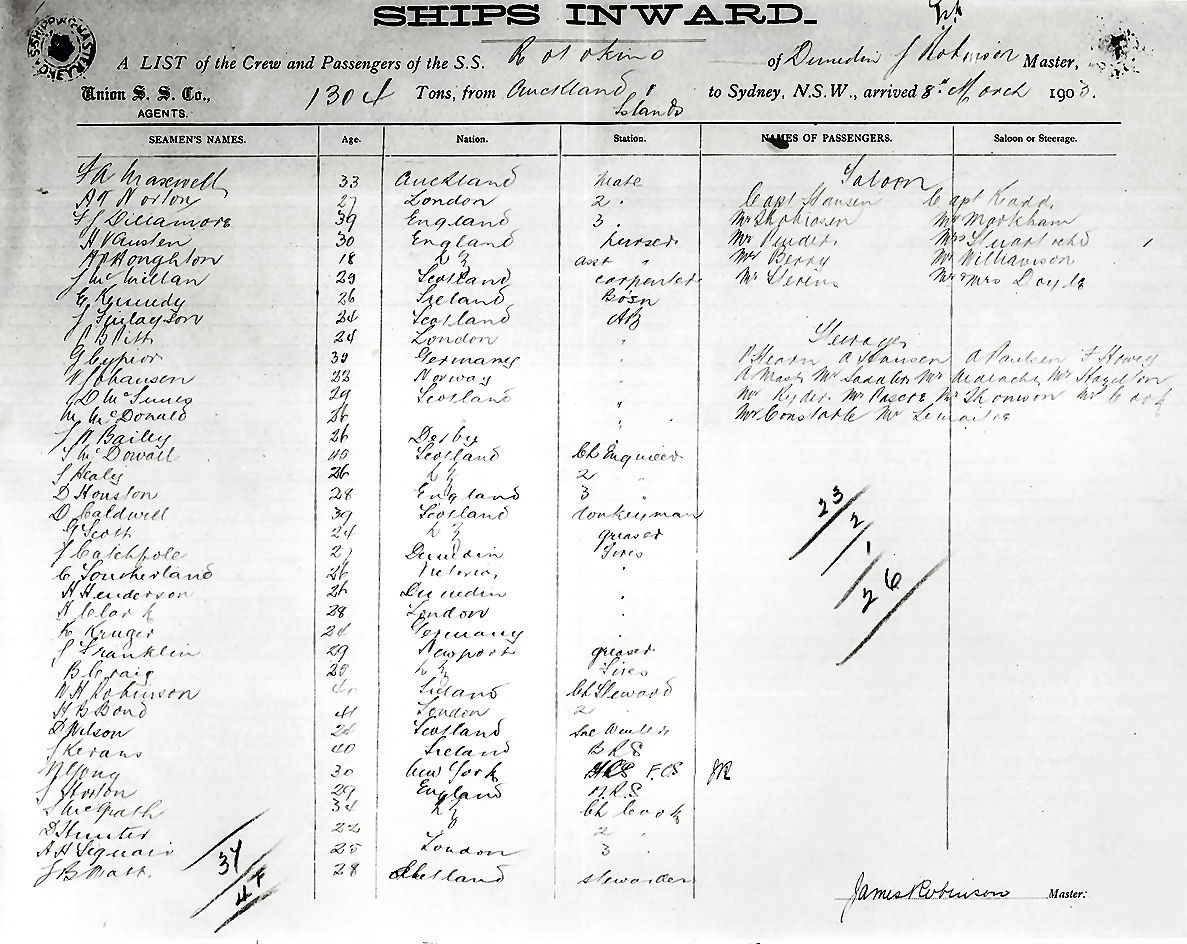 SHIPS INWARD.
A LIST of the Crew and Passengers of the S.S. Rotokino of Dunedin J Robinson Master,
Union S. S. Co., 1304 Tons, from Auckland to Sydney, N.S.W., arrived 8th March 1903.
AGENTS. Islands
SEAMEN'S NAMES. Age. Nation. Station. NAMES OF PASSENGERS. Saloon or Steerage.
Saloon
F A Maxwell 33 Auckland Mate
A T Norton 27 London 2 " Capt Hansen Capt Kadd
F J Dillamore 39 England 3 " Mr Markham
H V Austen 30 England purser Mr Pinder Mrs Stuart
A P Houghton 18 asst " Mr Berry Mr Williamson
J McMillan 29 Scotland carpenter Mr Stevens Mr & Mrs Doyle
E Kennedy 26 Ireland Bosn
J Finlayson 24 Scotland AB
24 London "
G Cypior 30 Germany " P Hearn A Hansen A Paulsen F Howey
W Johansen 23 Norway " Mr Saddler Mr Hazelton
J D McInnes 29 Scotland Mr Ryder Mr Thomson Mr Cook
M McDonald 26 " " Mr Constable Mr Lemaitre
J W Bailey 26 Derby "
J McDowall 40 Scotland Ch Engineer
J Healy 26 2 "
D Houston 28 England 3 "
D Caldwell 39 Scotland donkeyman
G Scott 24 greaser
J Catchpole 27 Dunedin Fires
C Southerland 26 Victoria "
H Henderson 26 Dunedin "
H Clark 28 London "
K Kruger 24 Germany "
J Franklin 29 Newport greaser
B Craig 25 Fires
W H Robinson Ireland Ch Steward
H B Bond 41 London 2 "
D Wilson 24 Scotland
J Kevans 40 Ireland B R S
W Young 30 New York F.C.S JR
J Horton 29 England
J McGrath 34 Ch Cook
D Hunter 22 2 "
A H Sequair 25 London 3 "
28 Shetland stewardess
23
2
1
26
37
47
James Robinson Master: